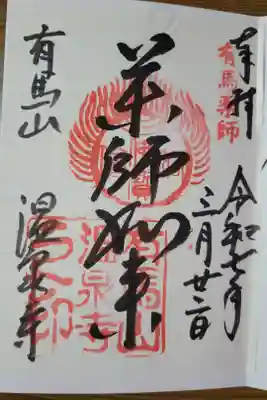 奉拝
有馬薬師
令和七年
三月廿二日
薬師如来
有馬山
温泉寺
有馬山
温泉寺
之印